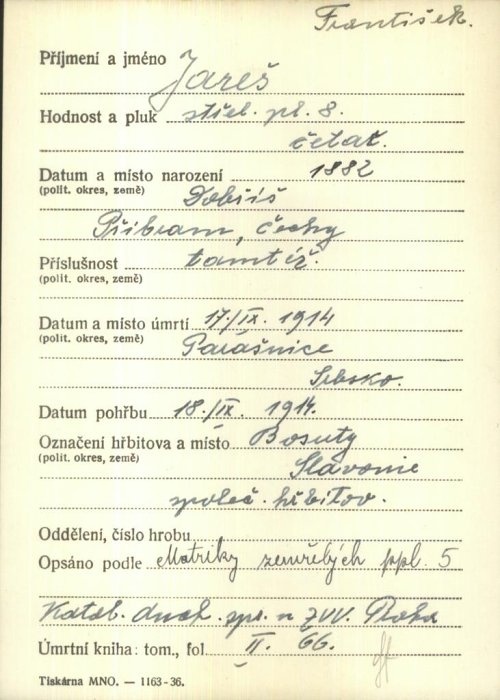 František.
Příjmení a jméno Jareš
Hodnost a pluk střel. pl. 8.
četař.
Datum a místo narození 1882
(polit. okres, země) Dobříš
Příbram, Čechy
Příslušnost tamtéž.
(polit. okres, země)
Datum a místo úmrtí 17./IX. 1914
(polit. okres, země) Parašnice
Srbsko.
Datum pohřbu 18./IX. 1914.
Označení hřbitova a místo Bosuty
(polit. okres, země) Slavonie
společ. hřbitov.
Oddělení, číslo hrobu
Opsáno podle Matriky zemřelých ppl. 5
Katol. duch. spr. u ZVV. Praha
Úmrtní kniha: tom., fol. II. 66.
Tiskárna MNO. — 1163-36.